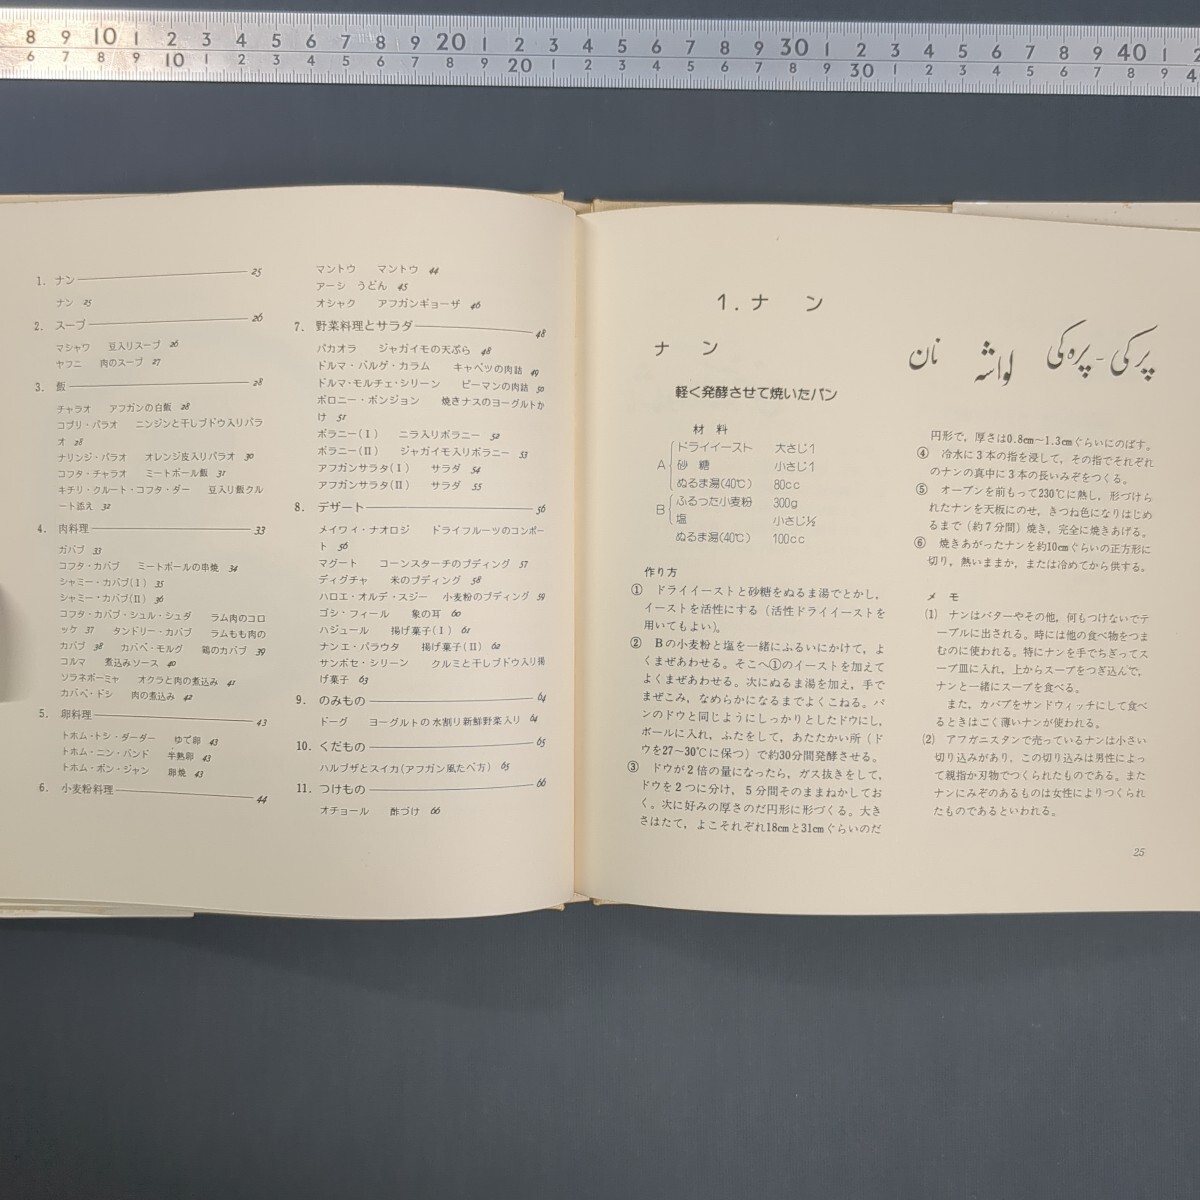 8 9 10 1 2 3 4 5 6 7 8 9 20 1 2 3 4 5 6 7 8 9 30 1 2 3 4 5 6 7 8 9 40 1 2
6 7 8 9 10 1 2 3 4 5 6 7 8 9 20 1 2 3 4 5 6 7 8 9 30 1 2 3 4 5 6 7 8 9 4
1. ナン 25
ナン 25
2. スープ 26
マシャワ 豆入りスープ 26
ヤフニ 肉のスープ 27
3. 飯 28
チャラオ アフガンの白飯 28
コブリ・パラオ ニンジンと干しブドウ入りパラ
オ 28
ナリンジ・パラオ オレンジ皮入りパラオ 30
コフタ・チャラオ ミートボール飯 31
キチリ・クルート・コフタ・ダー 豆入り飯クル
ート添え 32
4. 肉料理 33
カバブ 33
コフタ・カバブ ミートボールの串焼 34
シャミー・カバブ(I) 35
シャミー・カバブ(II) 36
コフタ・カバブ・シュル・シュダ ラム肉のコロ
ッケ 37 タンドリー・カバブ ラムもも肉の
カバブ 38 カバベ・モルグ 鶏のカバブ 39
コルマ 煮込みソース 40
ソラネボーミャ オクラと肉の煮込み 41
カバベ・ドシ 肉の煮込み 42
5. 卵料理 43
トホム・トシ・ダーダー ゆで卵 43
トホム・ニン・バンド 半熟卵 43
トホム・ボン・ジャン 卵焼 43
6. 小麦粉料理 44
マントウ マントウ 44
アーシ うどん 45
オシャク アフガンギョーザ 46
7. 野菜料理とサラダ 48
パカオラ ジャガイモの天ぷら 48
ドルマ・バルゲ・カラム キャベツの肉詰 49
ドルマ・モルチェ・シリーン ピーマンの肉詰 50
ボロニー・ボンジョン 焼きナスのヨーグルトか
け 51
ボラニー(I) ニラ入りボラニー 52
ボラニー(II) ジャガイモ入りボラニー 53
アフガンサラタ(I) サラダ 54
アフガンサラタ(II) サラダ 55
8. デザート 56
メイワィ・ナオロジ ドライフルーツのコンポー
ト 56
マグート コーンスターチのプディング 57
ディグチャ 米のプディング 58
ハロエ・オルデ・スジー 小麦粉のプディング 59
ゴシ・フィール 象の耳 60
ハジュール 揚げ菓子(I) 61
ナンエ・パラウタ 揚げ菓子(II) 62
サンボセ・シリーン クルミと干しブドウ入り揚
げ菓子 63
9. のみもの 64
ドーグ ヨーグルトの水割り新鮮野菜入り 64
10. くだもの 65
ハルブザとスイカ(アフガン風たべ方) 65
11. つけもの 66
オチョール 酢づけ 66
1. ナン
ナン
نان لواشه پره کی - پرکی
軽く発酵させて焼いたパン
材料
A ドライイースト 大さじ1
砂糖 小さじ1
ぬるま湯(40℃) 80cc
B ふるった小麦粉 300g
塩 小さじ½
ぬるま湯(40℃) 100cc
作り方
① ドライイーストと砂糖をぬるま湯でとかし,
イーストを活性にする(活性ドライイーストを
用いてもよい)。
② Bの小麦粉と塩を一緒にふるいにかけて,よ
くまぜあわせる。そこへ①のイーストを加えて
よくまぜあわせる。次にぬるま湯を加え,手で
まぜこみ,なめらかになるまでよくこねる。パ
ンのドウと同じようにしっかりとしたドウにし,
ボールに入れ,ふたをして,あたたかい所(ド
ウを27~30℃に保つ)で約30分間発酵させる。
③ ドウが2倍の量になったら,ガス抜きをして,
ドウを2つに分け,5分間そのままねかしてお
く。次に好みの厚さのだ円形に形づくる。大き
さはたて,よこそれぞれ18cmと31cmぐらいのだ
円形で,厚さは0.8cm~1.3cmぐらいにのばす。
④ 冷水に3本の指を浸して,その指でそれぞれ
のナンの真中に3本の長いみぞをつくる。
⑤ オーブンを前もって230℃に熱し,形づけら
れたナンを天板にのせ,きつね色になりはじめ
るまで(約7分間)焼き,完全に焼きあげる。
⑥ 焼きあがったナンを約10cmぐらいの正方形に
切り,熱いままか,または冷めてから供する。
メモ
(1) ナンはバターやその他,何もつけないでテ
ーブルに出される。時には他の食べ物をつま
むのに使われる。特にナンを手でちぎってス
ープ皿に入れ,上からスープをつぎ込んで,
ナンと一緒にスープを食べる。
また,カバブをサンドウィッチにして食べ
るときはごく薄いナンが使われる。
(2) アフガニスタンで売っているナンは小さい
切り込みがあり,この切り込みは男性によっ
て親指か刃物でつくられたものである。また
ナンにみぞのあるものは女性によりつくられ
たものであるといわれる。
25